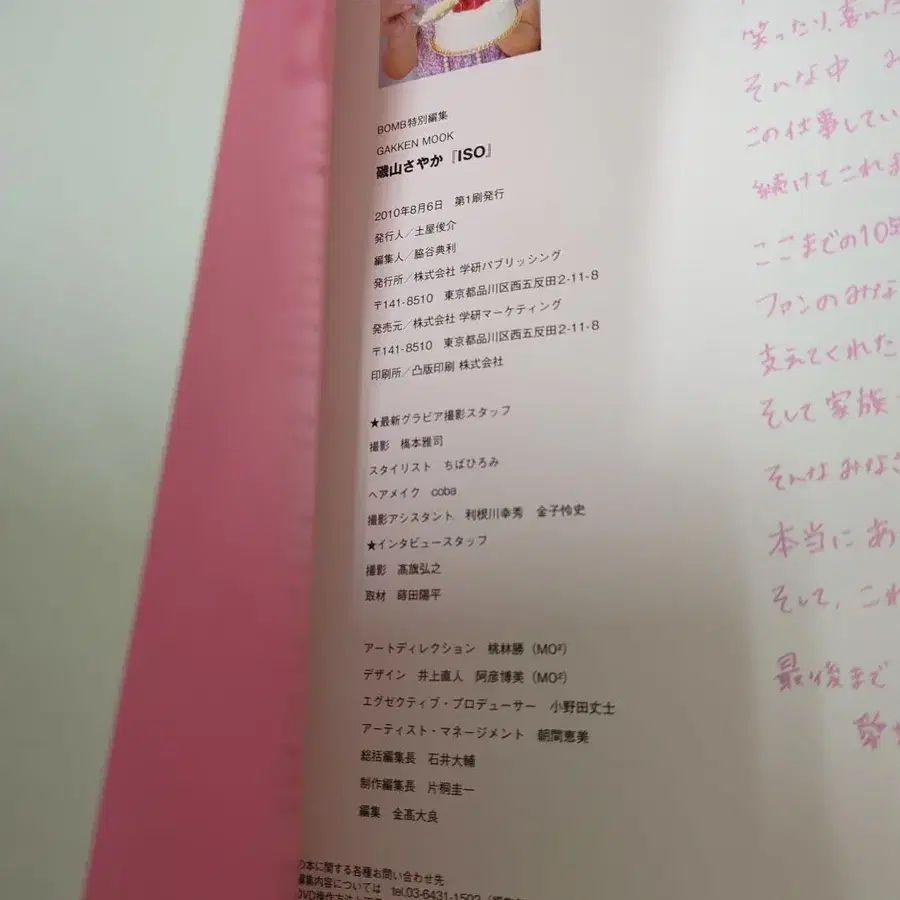 BOMB特別編集
GAKKEN MOOK
磯山さやか『ISO』
2010年8月6日　第1刷発行
発行人／土屋俊介
編集人／脇谷典利
発行所／株式会社 学研パブリッシング
〒141-8510　東京都品川区西五反田2-11-8
発売元／株式会社 学研マーケティング
〒141-8510　東京都品川区西五反田2-11-8
印刷所／凸版印刷 株式会社
★最新グラビア撮影スタッフ
撮影　橋本雅司
スタイリスト　ちばひろみ
ヘアメイク　coba
撮影アシスタント　利根川幸秀　金子怜史
★インタビュースタッフ
撮影　髙旗弘之
取材　蒔田陽平
アートディレクション　桃林勝（MO²）
デザイン　井上直人　阿彦博美（MO²）
エグゼクティブ・プロデューサー　小野田丈士
アーティスト・マネージメント　朝間恵美
総括編集長　石井大輔
制作編集長　片桐圭一
編集　金髙大良
の本に関する各種お問い合わせ先
編集内容については　tel.03-6431-1502
笑ったり、喜んだ
そんな中
この仕事してい
続けてこれま
ここまでの10年
ファンのみな
支えてくれた
そして家族
そんなみなさ
本当にあ
そして、これ
最後まで